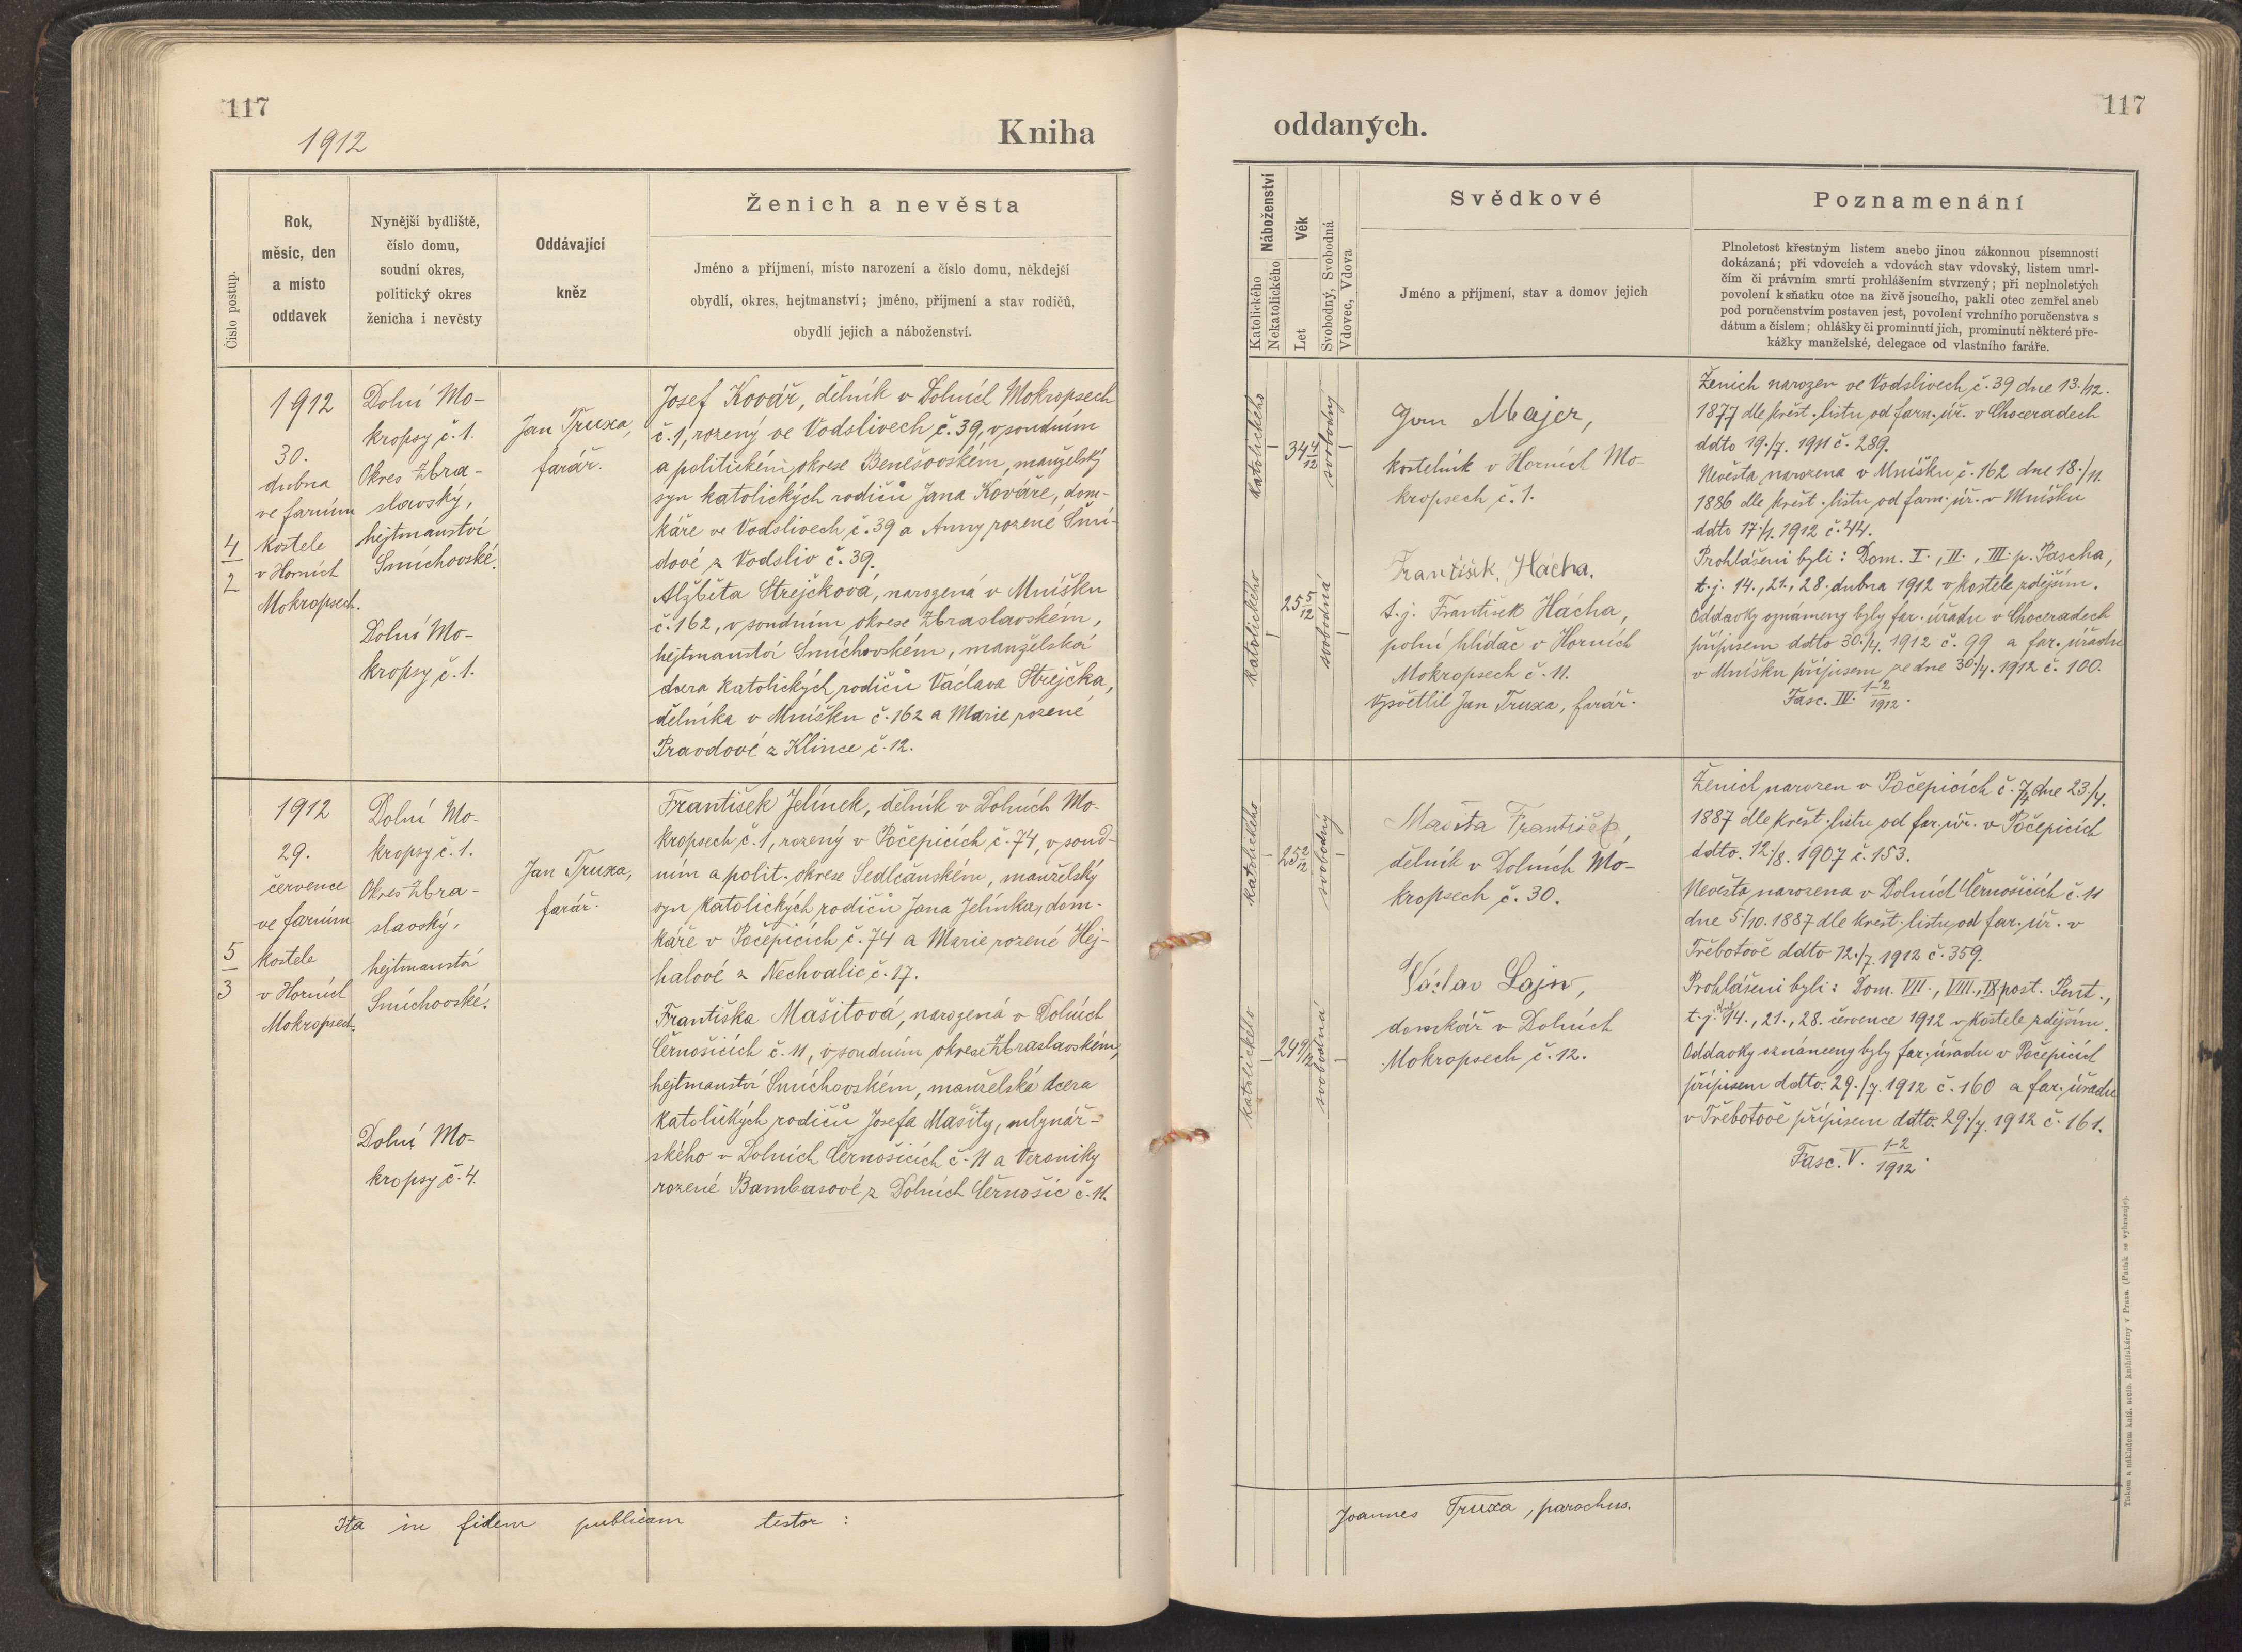 117
1912
Kniha
Číslo postup.
Rok,
měsíc, den
a místo
oddavek
Nynější bydliště,
číslo domu,
soudní okres,
politický okres
ženicha i nevěsty
Oddávající
kněz
Ženich a nevěsta
Jméno a příjmení, místo narození a číslo domu, někdejší
obydlí, okres, hejtmanství; jméno, příjmení a stav rodičů,
obydlí jejich a náboženství.
4
2
1912
30.
dubna
ve farním
kostele
v Horních
Mokropsech.
Dolní Mo-
kropsy č. 1.
Okres Zbra-
slavský,
hejtmanství
Smíchovské.
Dolní Mo-
kropsy č. 1.
Jan Truxa,
farář.
Josef Kovář, dělník v Dolních Mokropsech
č. 1, rozený ve Vodslivech č. 39, v soudním
a politickém okrese Benešovském, manželský
syn katolických rodičů Jana Kováře, dom-
káře ve Vodslivech č. 39 a Anny rozené Šmí-
dové z Vodsliv č. 39.
Alžběta Strejčková, narozená v Mníšku
č. 162, v soudním okrese Zbraslavském,
hejtmanství Smíchovském, manželská
dcera katolických rodičů Václava Strejčka,
dělníka v Mníšku č. 162 a Marie rozené
Pravdové z Klince č. 12.
5
3
1912
29.
července
ve farním
kostele
v Horních
Mokropsech.
Dolní Mo-
kropsy č. 1.
Okres Zbra-
slavský,
hejtmanství
Smíchovské.
Dolní Mo-
kropsy č. 4.
Jan Truxa,
farář.
František Jelínek, dělník v Dolních Mo-
kropsech č. 1, rozený v Počepicích č. 74, v soud-
ním a polit. okrese Sedlčanském, manželský
syn katolických rodičů Jana Jelínka, dom-
káře v Počepicích č. 74 a Marie rozené Hej-
halové z Nechvalic č. 17.
Františka Mašitová, narozená v Dolních
Černošicích č. 11, v soudním okrese Zbraslavském,
hejtmanství Smíchovském, manželská dcera
katolických rodičů Josefa Mašity, mlynář-
ského v Dolních Černošicích č. 11 a Veroniky
rozené Bambasové z Dolních Černošic č. 11.
Ita in fidem publicam testor:
117
oddaných.
Náboženství
Katolického
Nekatolického
Věk
Let
Svobodný, Svobodná
Vdovec, Vdova
Svědkové
Jméno a příjmení, stav a domov jejich
Poznamenání
Plnoletost křestným listem anebo jinou zákonnou písemností
dokázaná; při vdovcích a vdovách stav vdovský, listem umrl-
čím či právním smrti prohlášením stvrzený; při neplnoletých
povolení k sňatku otce na živě jsoucího, pakli otec zemřel aneb
pod poručenstvím postaven jest, povolení vrchního poručenstva s
dátum a číslem; ohlášky či prominutí jich, prominutí některé pře-
kážky manželské, delegace od vlastního faráře.
katolického
34 4/12
svobodný
katolického
25 5/12
svobodná
Jan Majer,
kostelník v Horních Mo-
kropsech č. 1.
František Hácha.
t. j. František Hácha,
polní hlídač v Horních
Mokropsech č. 11.
Vysvětlil Jan Truxa, farář.
Ženich narozen ve Vodslivech č. 39 dne 13./12.
1877 dle křest. listu od farn. úř. v Choceradech
ddto 19./7. 1911 č. 289.
Nevěsta narozena v Mníšku č. 162 dne 18./11.
1886 dle křest. listu od farn. úř. v Mníšku
ddto 17./1. 1912 č. 44.
Prohlášeni byli: Dom. II., III. p. Pascha,
t. j. 14., 21., 28. dubna 1912 v kostele zdejším.
Oddavky oznámeny byly far. úřadu v Choceradech
přípisem ddto 30./4. 1912 č. 99 a far. úřadu
v Mníšku přípisem ze dne 30./4. 1912 č. 100.
Fasc. IV. 1-2/1912.
katolického
25 2/12
svobodný
katolického
24 9/12
svobodná
Mašita František,
dělník v Dolních Mo-
kropsech č. 30.
Václav Lajn,
domkář v Dolních
Mokropsech č. 12.
Ženich narozen v Počepicích č. 74 dne 23./4.
1887 dle křest. listu od far. úř. v Počepicích
ddto. 12./8. 1907 č. 153.
Nevěsta narozena v Dolních Černošicích č. 11
dne 5./10. 1887 dle křest. listu od far. úř. v
Třebotově ddto 12./7. 1912 č. 359.
Prohlášeni byli: Dom. VII., VIII., IX. post. Pent.,
t. j. dne 14., 21., 28. července 1912 v kostele zdejším.
Oddavky oznámeny byly far. úřadu v Počepicích
přípisem ddto. 29./7. 1912 č. 160 a far. úřadu
v Třebotově přípisem ddto. 29./7. 1912 č. 161.
Fasc. V. 1-2/1912.
Joannes Truxa, parochus.
Tiskem a nákladem kníž. arcib. knihtiskárny v Praze. (Patisk se vyhrazuje).